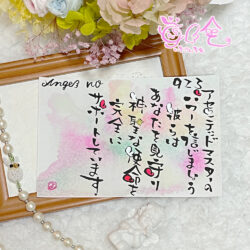 Angel no
923
アセンデッドマスターの
パワーを信じましょう
彼らは
あなたを見守り
神聖なる使命を
完全に
サポートしています